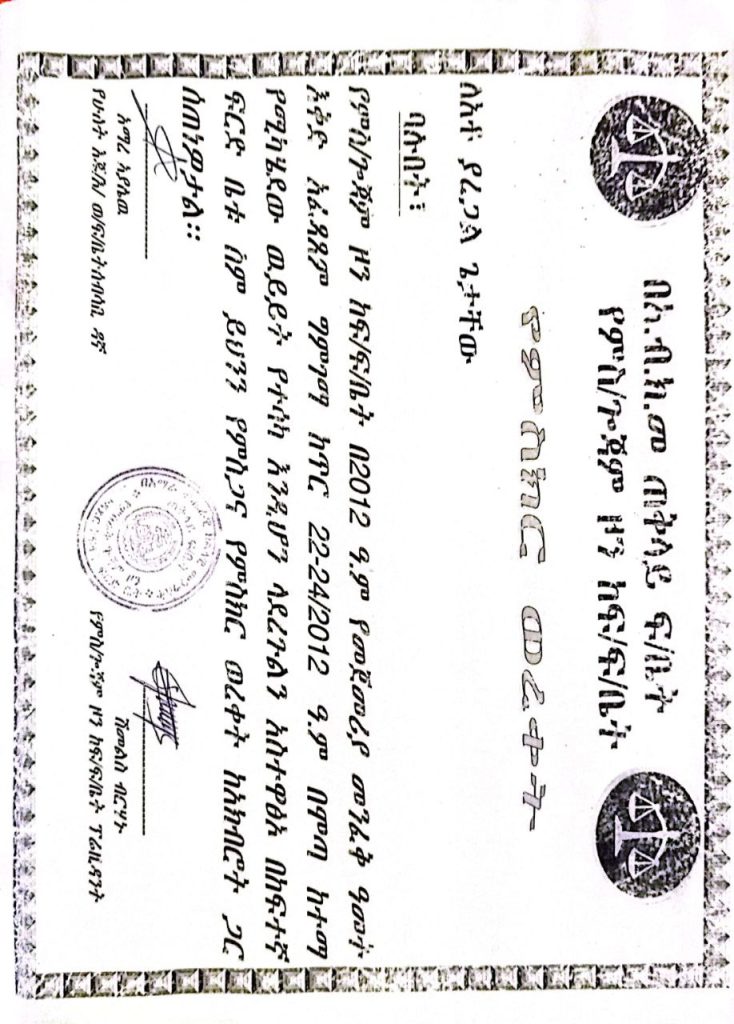 በአ.ብ.ክ.መ ጠቅላይ ፍ/ቤት
የምስ/ጐጃም ዞን ከፍ/ፍ/ቤት
የምስክር ወረቀት
ለአቶ ያረጋል ጌታቸው
ባሉበት፤
የምስ/ጐጃም ዞን ከፍ/ፍ/ቤት በ2012 ዓ.ም የመጀመሪያ መንፈቅ ዓመት
እቅድ አፈጻጸም ግምገማ ከጥር 22-24/2012 ዓ.ም በሞጣ ከተማ
የሚካሄደው ውይይት የተሳካ እንዲሆን ላደረጉልን አስተዋፅኦ በከፍተኛ
ፍርድ ቤቱ ስም ይህንን የምስጋና የምስክር ወረቀት ከአክብሮት ጋር
ሰጠነዎታል፡፡
አማረ አያሌዉ
የሁለት እጁ/እ/ ወ/ፍ/ቤት ሰብሳቢ ዳኛ
ሽመልስ ብርሃኑ
የምስ/ጐጃም ዞን ከፍ/ፍ/ቤት ፕሬዚዳንት